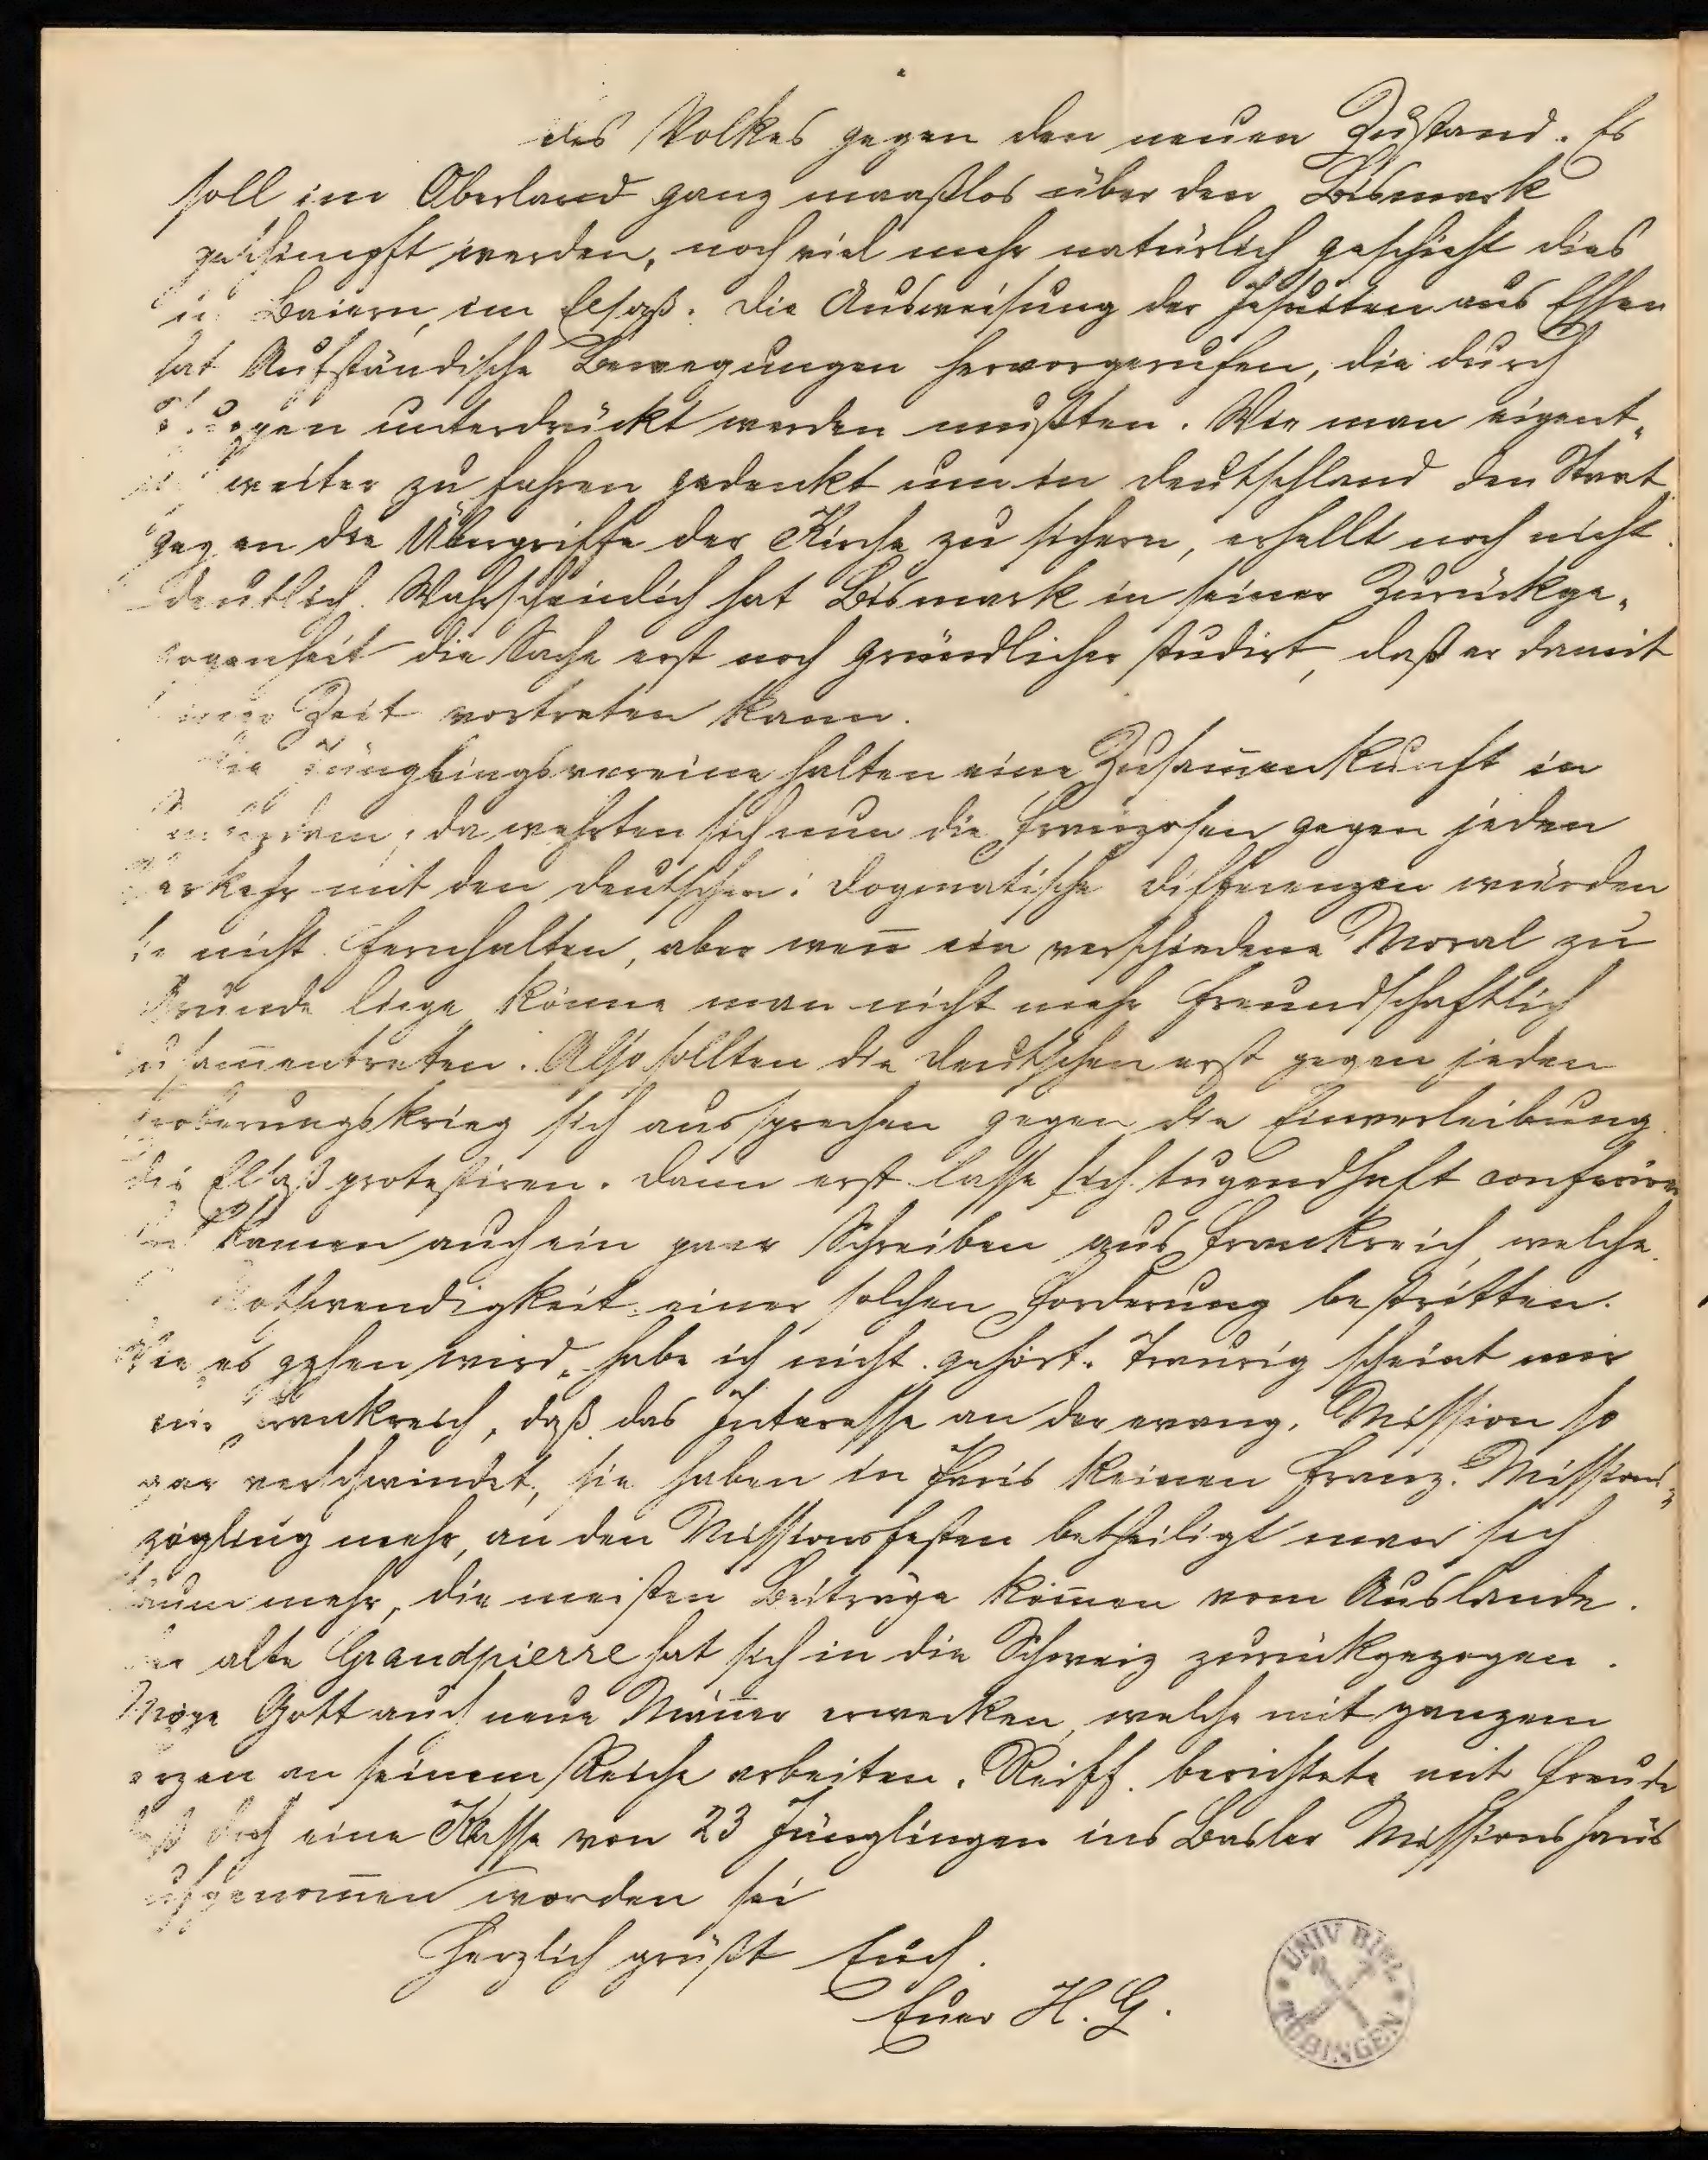 des Volkes gegen den neuen Zustand. Es
soll im Oberland ganz maaßlos über den Bismark
geschimpft werden, noch viel mehr natürlich geschieht dies
in Baiern, im Elsaß. Die Ausweisung der Jesuiten aus Essen
hat Aufständische Bewegungen hervorgerufen, die durch
unterdrückt werden mußten. Wie man eigent-
weiter zu fahren gedenkt um in Deutschland den Staat
gegen die Übergriffe der Kirche zu sichern, erhellt noch nicht
deutlich. Wahrscheinlich hat Bismark in seiner Zurückge-
zogenheit die Sache erst noch gründlicher studirt, daß er damit
Zeit vortreten kann.
Die Jünglingsvereine halten eine Zusam̅enkunft in
da wehrten sich nun die Franzosen gegen jeden
Verkehr mit den Deutschen: Dogmatische Differenzen würden
sie nicht fernhalten, aber wen̅ ein verschiedene Moral zu
Grunde liege könne man nicht mehr freundschaftlich
zusam̅entreten. Also sollten die Deutschen erst gegen jeden
Eroberungskrieg sich aussprechen gegen die Einverleibung
des Elsaß protestiren. Dann erst lasse sich tugendhaft conferiren
kamen auch ein paar Schreiben aus Frankreich, welche
Nothwendigkeit einer solchen Forderung bestritten.
Wie es gehen wird, habe ich nicht gehört. Traurig scheint mir
Frankreich, daß das Interesse an der evang. Mission so
gar verschwindet, sie haben in Paris keinen franz. Missions-
zögling mehr, an den Missionsfesten betheiligt man sich
kaum mehr, die meisten Beiträge kom̅en vom Auslande.
Der alte Grandpierre hat sich in die Schweiz zurückgezogen.
Möge Gott auch neue Män̅er erwecken, welche mit ganzem
Herzen an seinem Reiche arbeiten. Reiff berichtete mit Freude
daß doch eine Klasse von 23 Jünglingen ins Basler Missionshaus
aufgenom̅en worden sei
Herzlich grüßt Euch.
Euer H. G.
UNIV BIBL
TÜBINGEN